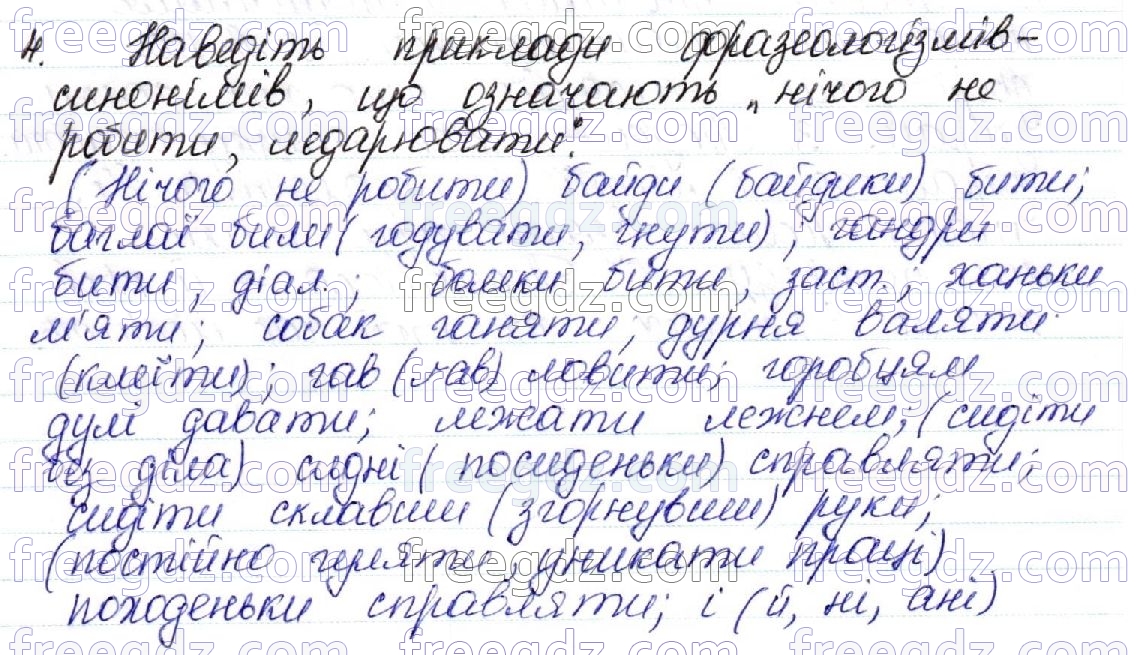 4. Наведіть приклади фразеологізмів-
синонімів, що означають „нічого не
робити, ледарювати".
(Нічого не робити) байди (байдики) бити;
баглаї били (годувати, гнути); гандри
бити, діал.; бомки бити, заст.; ханьки
м'яти; собак ганяти; дурня валяти
(клеїти); гав (ґав) ловити; горобцям
дулі давати; лежати лежнем; (сидіти
без діла) сидні (посиденьки) справляти;
сидіти склавши (згорнувши) руки;
(постійно гуляти, уникати праці)
походеньки справляти; і (й, ні, ані)